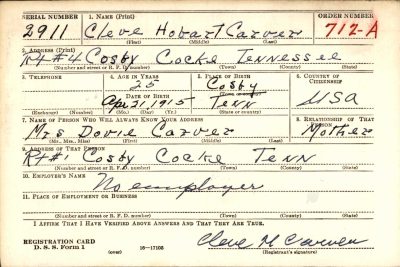 SERIAL NUMBER 1. NAME (Print) ORDER NUMBER
2911 Cleve Hobart Carver 712-A
(First) (Middle) (Last)
2. ADDRESS (Print)
R#4 Cosby Cocke Tennessee
(Number and street or R. F. D. number) (Town) (County) (State)
3. TELEPHONE 4. AGE IN YEARS 5. PLACE OF BIRTH 6. COUNTRY OF CITIZENSHIP
25 Cosby
DATE OF BIRTH (Town or county)
Apr 21, 1915 Tenn USA
(Exchange) (Number) (Mo.) (Day) (Yr.) (State or country)
7. NAME OF PERSON WHO WILL ALWAYS KNOW YOUR ADDRESS 8. RELATIONSHIP OF THAT PERSON
Mrs Dovie Carver Mother
(Mr., Mrs., Miss) (First) (Middle) (Last)
9. ADDRESS OF THAT PERSON
Rt #1 Cosby Cocke Tenn
(Number and street or R. F. D. number) (Town) (County) (State)
10. EMPLOYER'S NAME
No employer
11. PLACE OF EMPLOYMENT OR BUSINESS
(Number and street or R. F. D. number) (Town) (County) (State)
I AFFIRM THAT I HAVE VERIFIED ABOVE ANSWERS AND THAT THEY ARE TRUE.
REGISTRATION CARD
D. S. S. Form 1 (over) 16—17105 Cleve H Carver
(Registrant's signature)